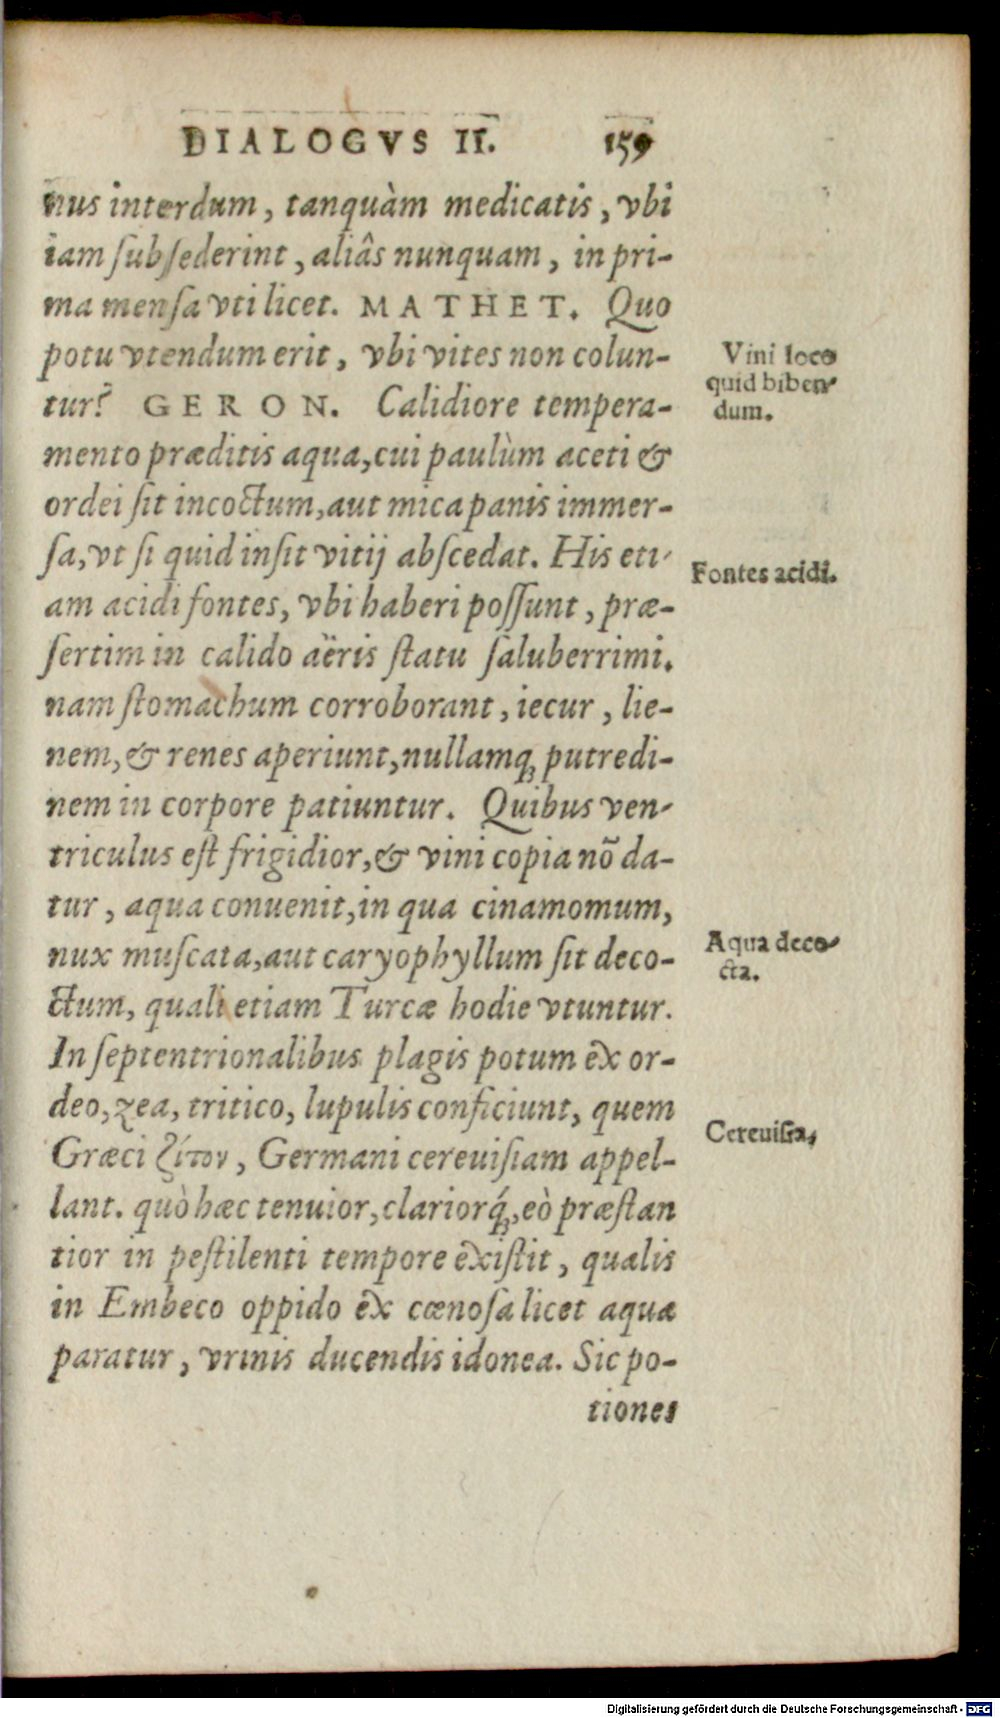 DIALOGVS II. 159
nus interdum, tanquàm medicatis, vbi
iam ſubſederint, aliâs nunquam, in pri-
ma menſa vti licet. MATHET. Quo
potu vtendum erit, vbi vites non colun-
Vini loco
quid biben-
dum.
tur? GERON. Calidiore tempera-
mento præditis aqua, cui paulùm aceti &
ordei ſit incoctum, aut mica panis immer-
ſa, vt ſi quid inſit vitij abſcedat. His eti-
Fontes acidi.
am acidi fontes, vbi haberi poſſunt, præ-
ſertim in calido aëris ſtatu ſaluberrimi.
nam ſtomachum corroborant, iecur, lie-
nem, & renes aperiunt, nullamq; putredi-
nem in corpore patiuntur. Quibus ven-
triculus eſt frigidior, & vini copia nõ da-
tur, aqua conuenit, in qua cinamomum,
nux muſcata, aut caryophyllum ſit deco-
Aqua deco-
cta.
ctum, quali etiam Turcæ hodie vtuntur.
In ſeptentrionalibus plagis potum ex or-
deo, zea, tritico, lupulis conficiunt, quem
Græci ζίτον, Germani cereuiſiam appel-
Cereuiſia.
lant. quò hæc tenuior, clariorq́;, eò præſtan
tior in peſtilenti tempore exiſtit, qualis
in Embeco oppido ex cœnoſa licet aqua
paratur, vrinis ducendis idonea. Sic po-
tiones
Digitalisierung gefördert durch die Deutsche Forschungsgemeinschaft - DFG